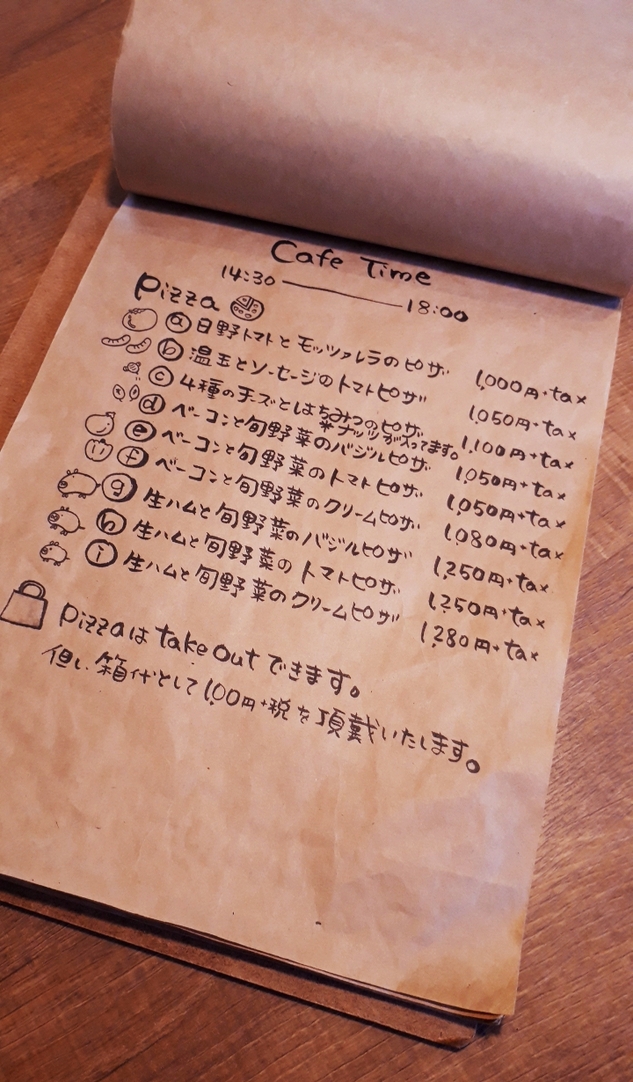 Cafe Time
14:30 ― 18:00
Pizza
ⓐ 日野トマトとモッツァレラのピザ 1,000円+tax
ⓑ 温玉とソーセージのトマトピザ 1,050円+tax
ⓒ 4種のチーズとはちみつのピザ 1,100円+tax
※ナッツが入ってます。
ⓓ ベーコンと旬野菜のバジルピザ 1,050円+tax
ⓔ ベーコンと旬野菜のトマトピザ 1,050円+tax
ⓕ ベーコンと旬野菜のクリームピザ 1,080円+tax
ⓖ 生ハムと旬野菜のバジルピザ 1,250円+tax
ⓗ 生ハムと旬野菜のトマトピザ 1,250円+tax
ⓘ 生ハムと旬野菜のクリームピザ 1,280円+tax
Pizzaは take out できます。
但し、箱代として100円+税を頂戴いたします。